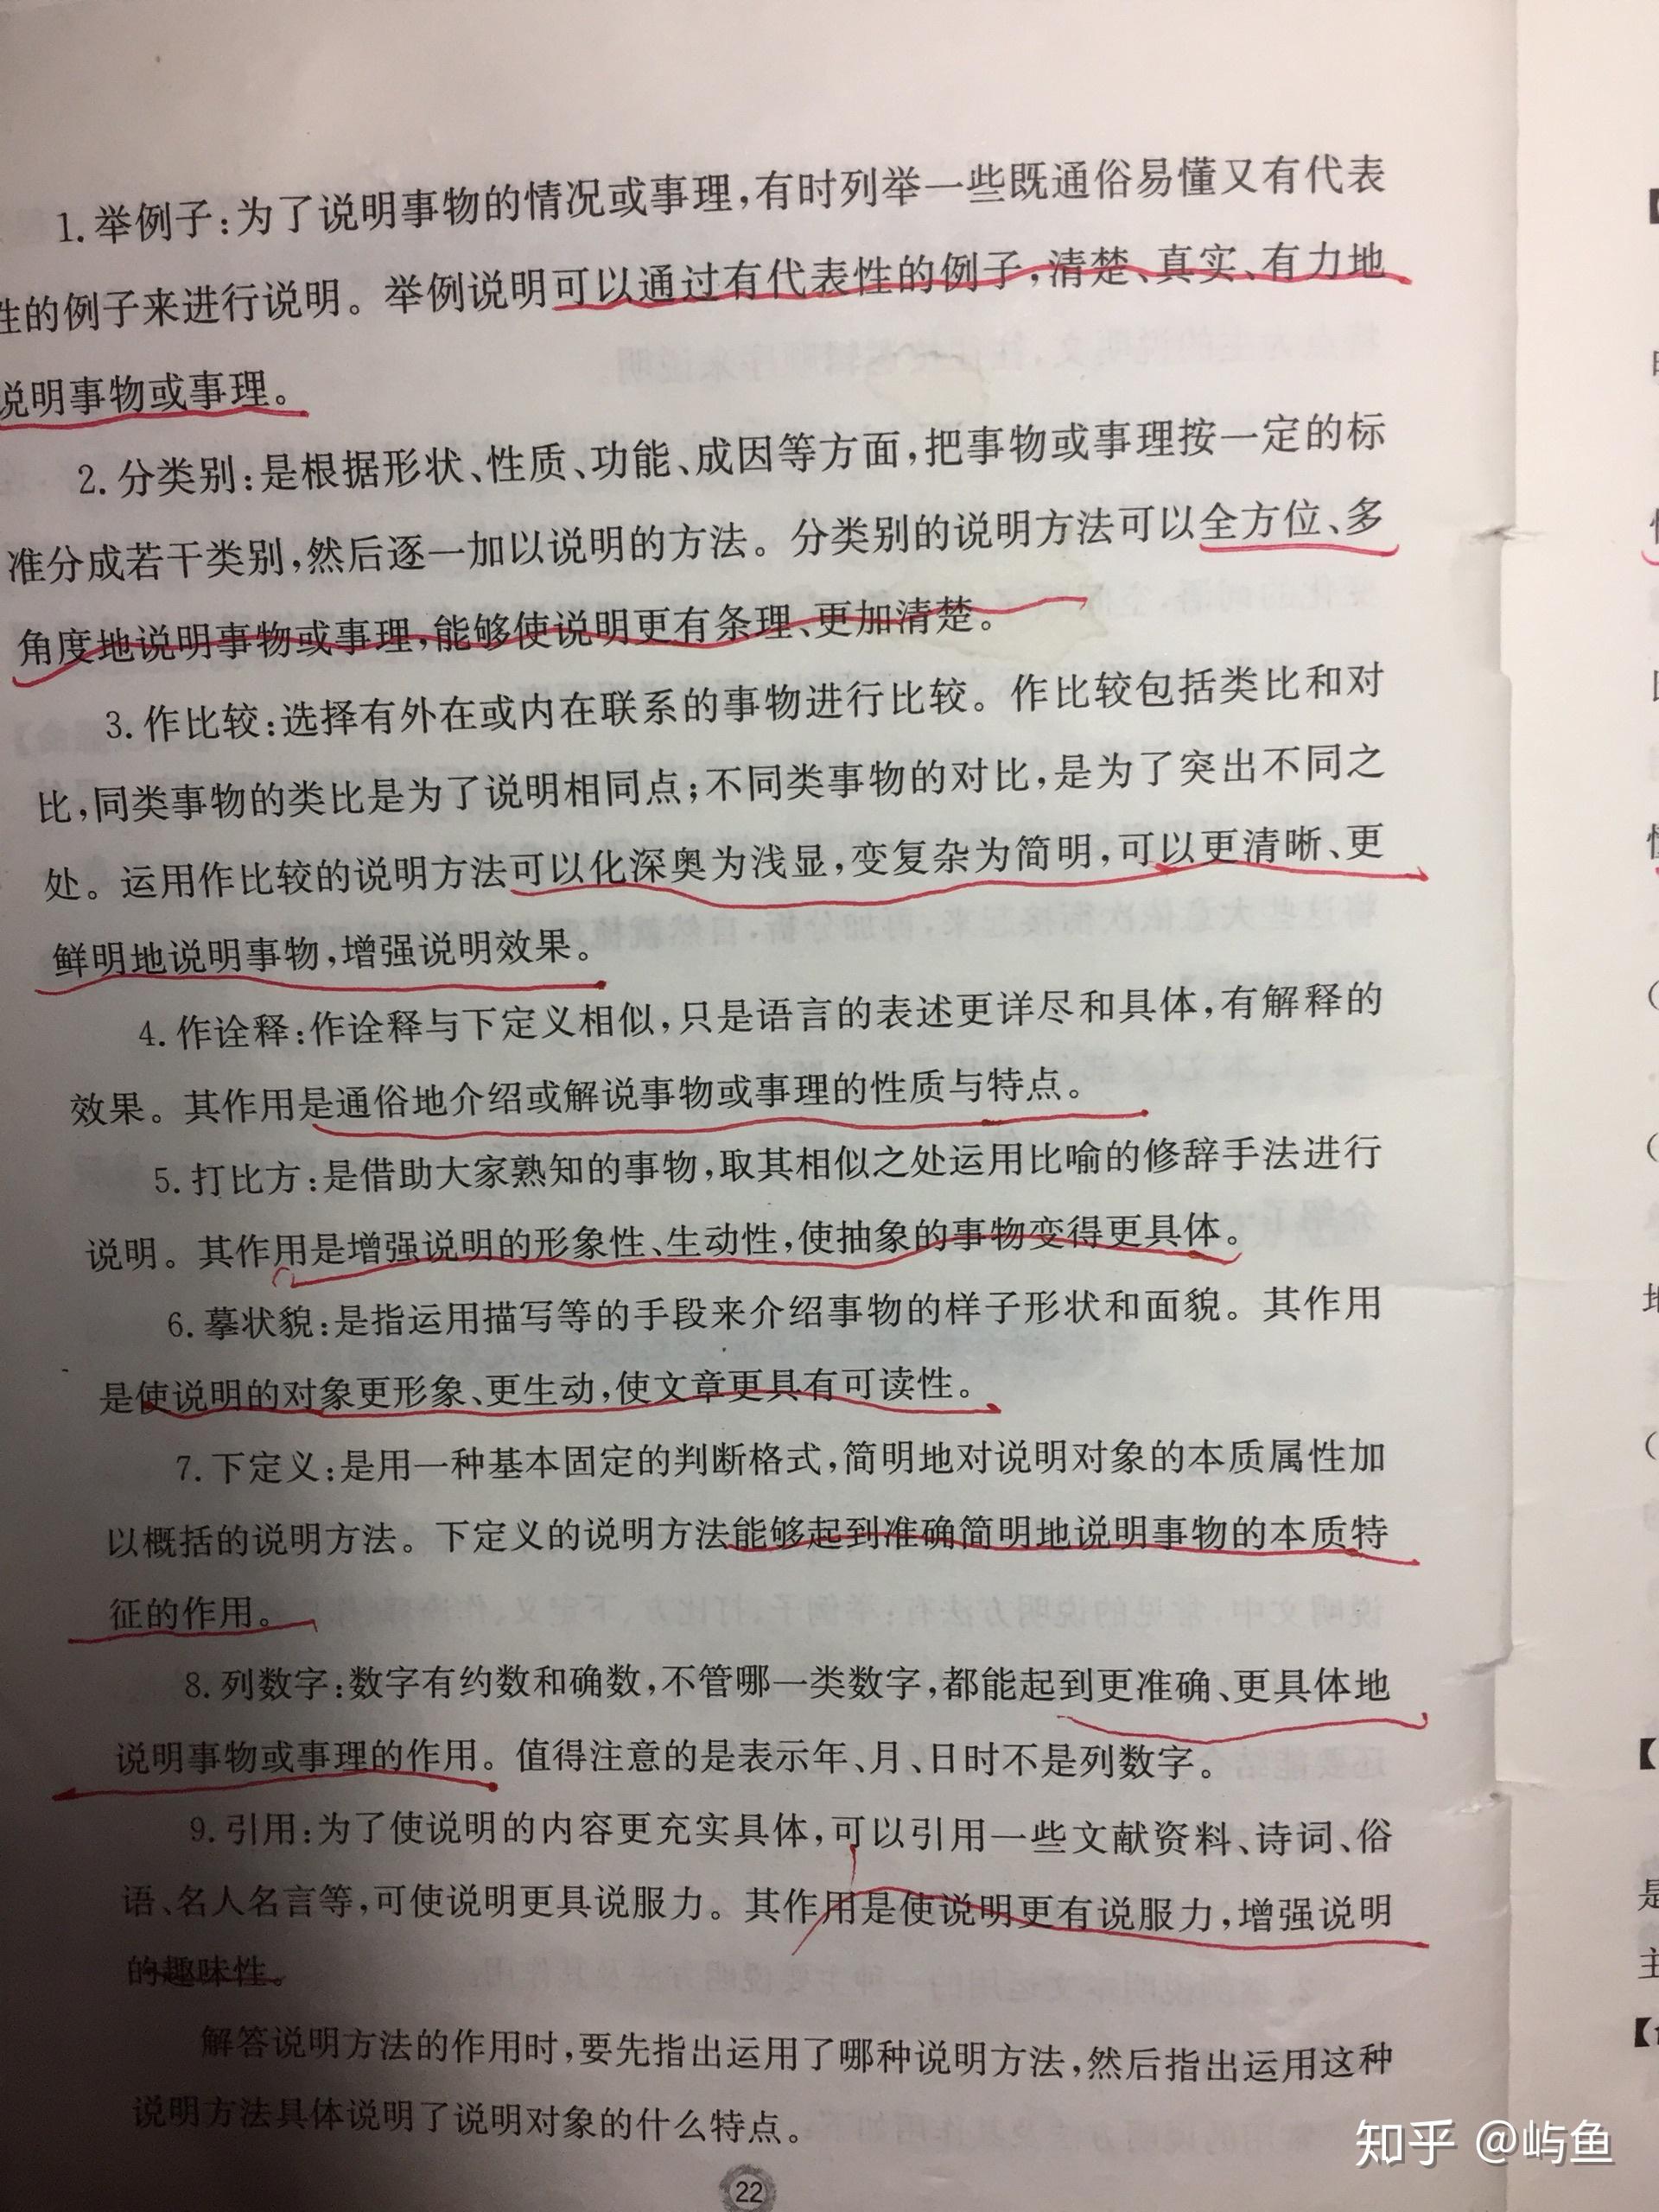 1.举例子:为了说明事物的情况或事理,有时列举一些既通俗易懂又有代表
性的例子来进行说明。举例说明可以通过有代表性的例子,清楚、真实、有力地
说明事物或事理。
2.分类别:是根据形状、性质、功能、成因等方面,把事物或事理按一定的标
准分成若干类别,然后逐一加以说明的方法。分类别的说明方法可以全方位、多
角度地说明事物或事理,能够使说明更有条理、更加清楚。
3.作比较:选择有外在或内在联系的事物进行比较。作比较包括类比和对
比,同类事物的类比是为了说明相同点;不同类事物的对比,是为了突出不同之
处。运用作比较的说明方法可以化深奥为浅显,变复杂为简明,可以更清晰、更
鲜明地说明事物,增强说明效果。
4.作诠释:作诠释与下定义相似,只是语言的表述更详尽和具体,有解释的
效果。其作用是通俗地介绍或解说事物或事理的性质与特点。
5.打比方:是借助大家熟知的事物,取其相似之处运用比喻的修辞手法进行
说明。其作用是增强说明的形象性、生动性,使抽象的事物变得更具体。
6.摹状貌:是指运用描写等的手段来介绍事物的样子形状和面貌。其作用
是使说明的对象更形象、更生动,使文章更具有可读性。
7.下定义:是用一种基本固定的判断格式,简明地对说明对象的本质属性加
以概括的说明方法。下定义的说明方法能够起到准确简明地说明事物的本质特
征的作用。
8.列数字:数字有约数和确数,不管哪一类数字,都能起到更准确、更具体地
说明事物或事理的作用。值得注意的是表示年、月、日时不是列数字。
9.引用:为了使说明的内容更充实具体,可以引用一些文献资料、诗词、俗
语、名人名言等,可使说明更具说服力。其作用是使说明更有说服力,增强说明
的趣味性。
解答说明方法的作用时,要先指出运用了哪种说明方法,然后指出运用这种
说明方法具体说明了说明对象的什么特点。
22
知乎 @屿鱼